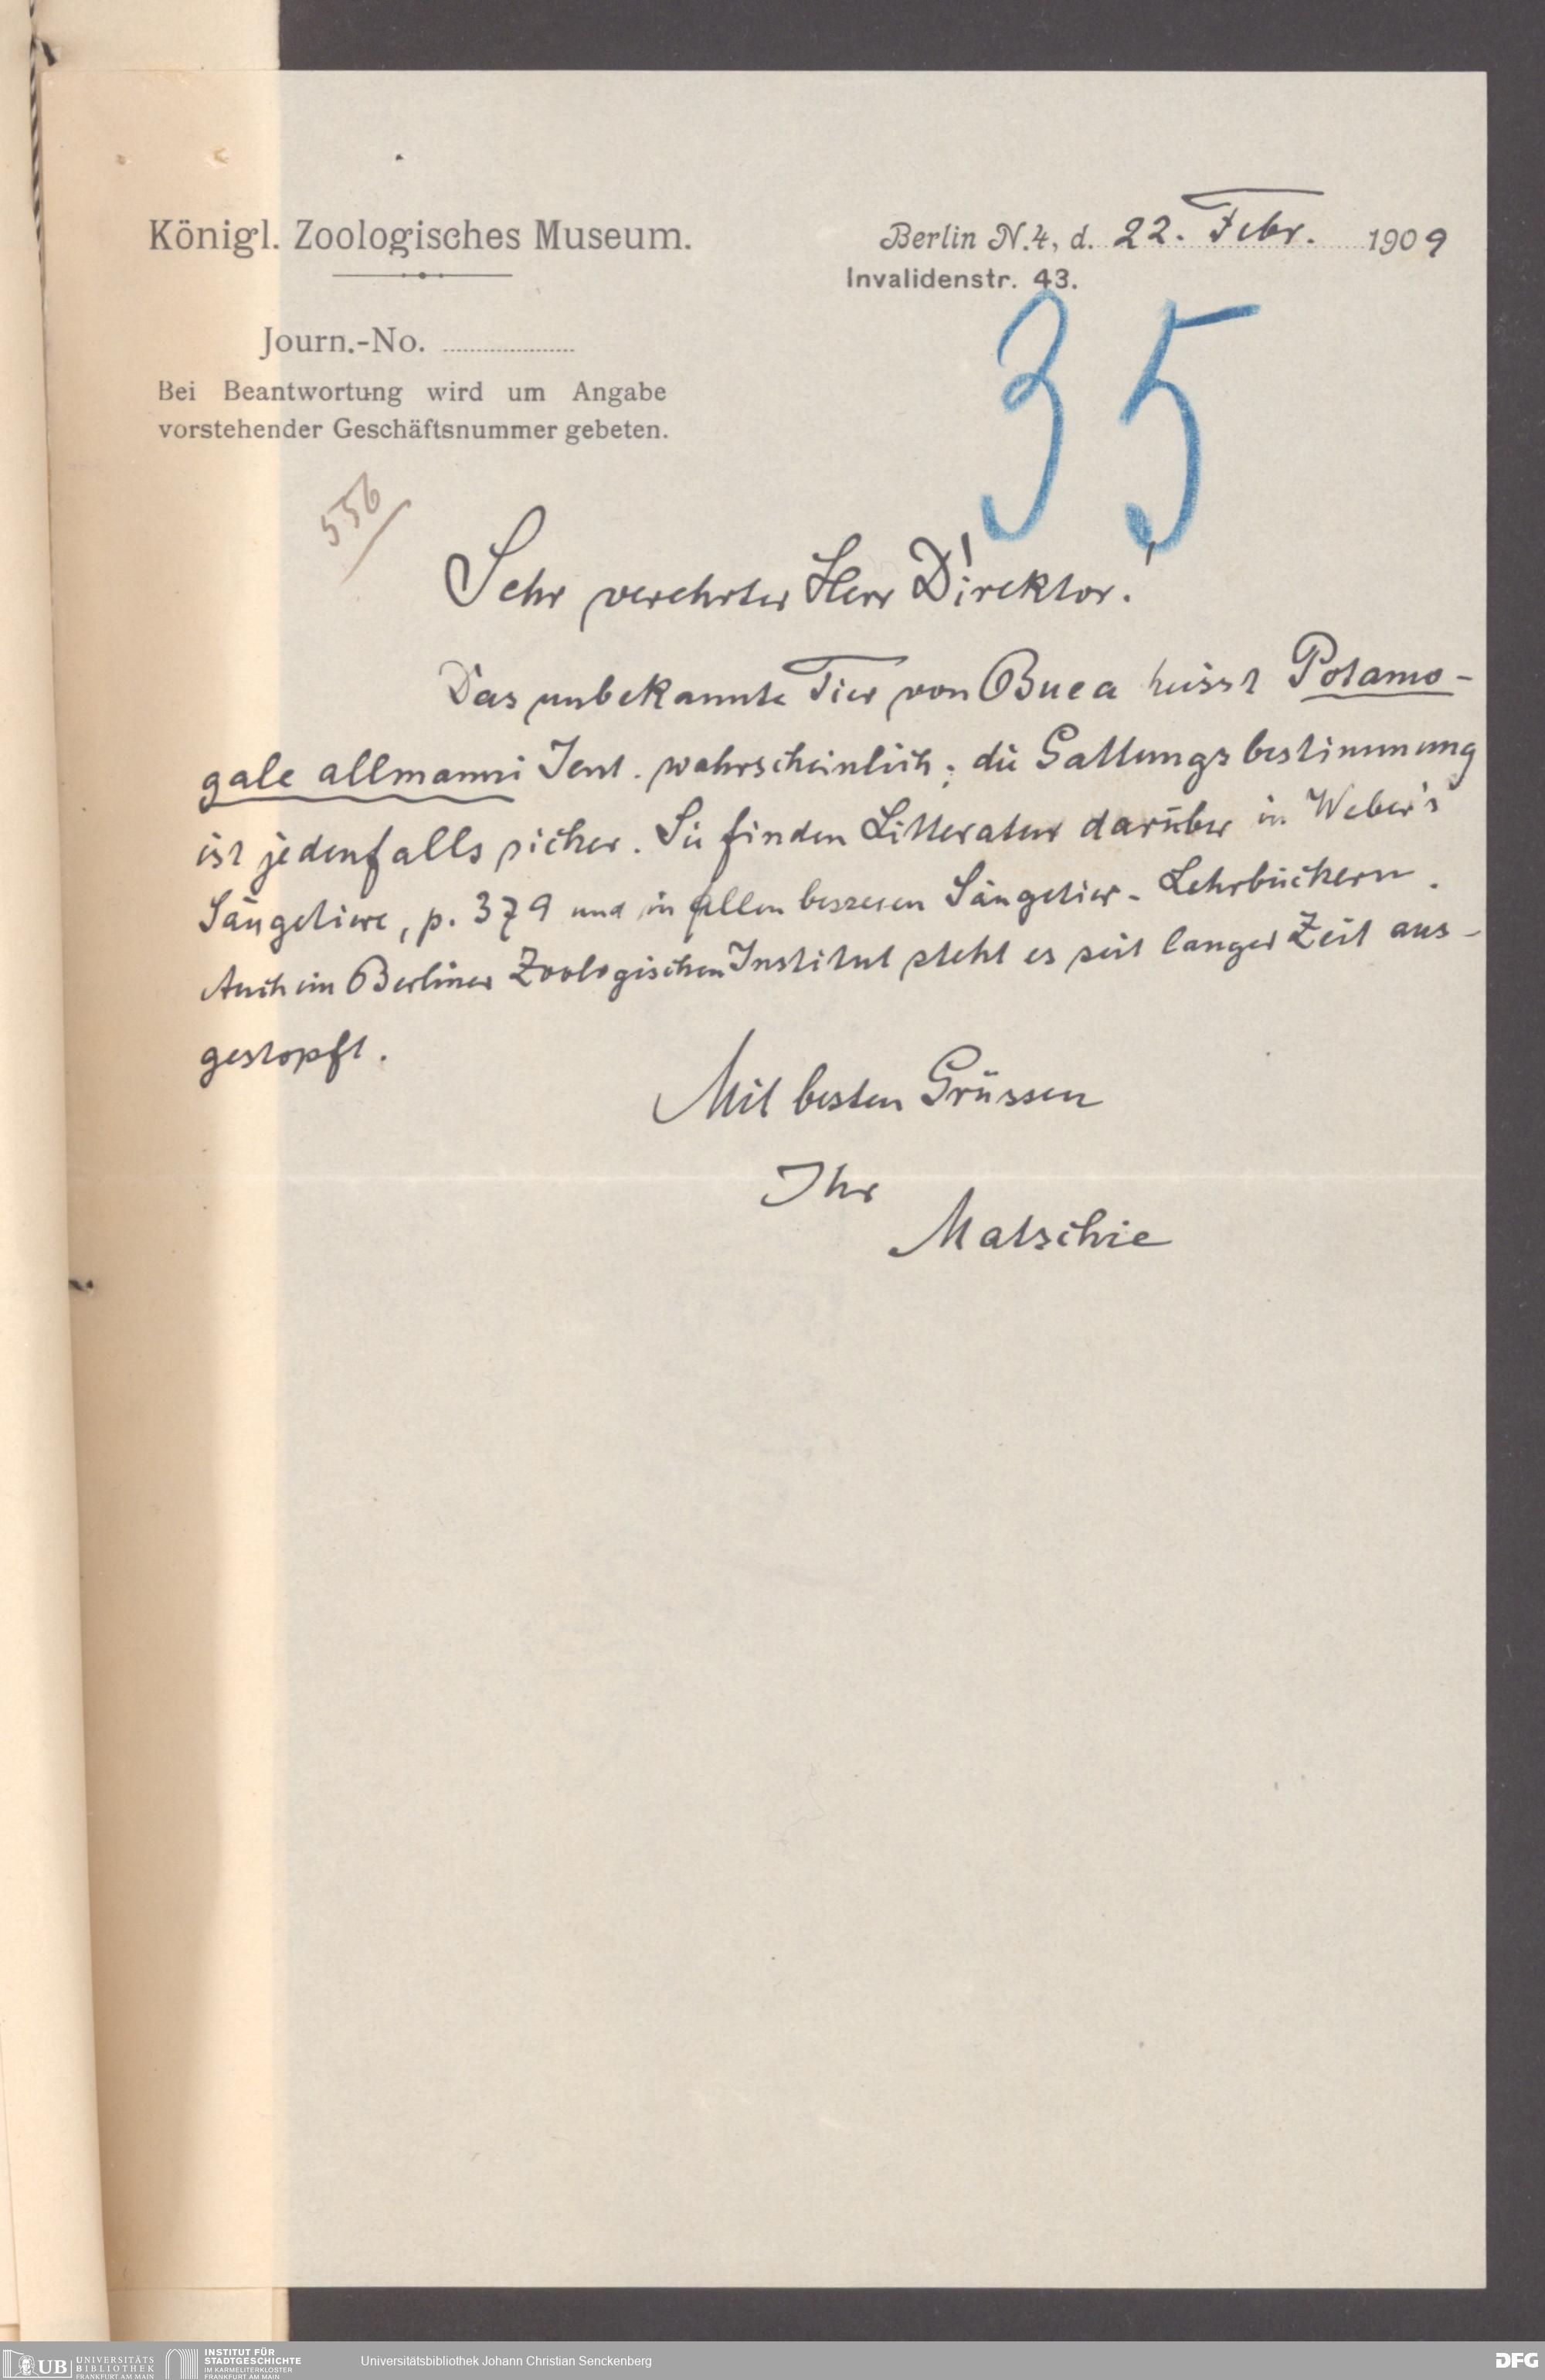 Königl. Zoologisches Museum.
Berlin N.4, d. 22. Febr. 1909
Invalidenstr. 43.
Journ.-No.
Bei Beantwortung wird um Angabe
vorstehender Geschäftsnummer gebeten.
35
556
Sehr verehrter Herr Direktor!
Das unbekannte Tier von Buea heisst Potamo-
gale allmanni Jent. wahrscheinlich; die Gattungsbestimmung
ist jedenfalls sicher. Sie finden Litteratur darüber in Weber's
Säugetiere, p. 379 und in allen besseren Säugetier-Lehrbüchern.
Auch im Berliner Zoologischen Institut steht es seit langer Zeit aus-
gestopft.
Mit besten Grüssen
Ihr
Matschie
UB UNIVERSITÄTS
BIBLIOTHEK
FRANKFURT AM MAIN
INSTITUT FÜR
STADTGESCHICHTE
IM KARMELITERKLOSTER
FRANKFURT AM MAIN
Universitätsbibliothek Johann Christian Senckenberg
DFG